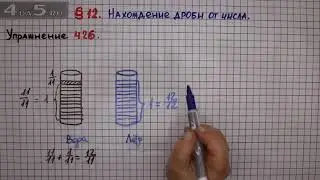 4на5.ru
§12. Нахождение дроби от числа.
Упражнение 426.
1/11
11/11 = 1
1 = 12/12
Вора
Лёр
11/11 + 1/11 = 12/11